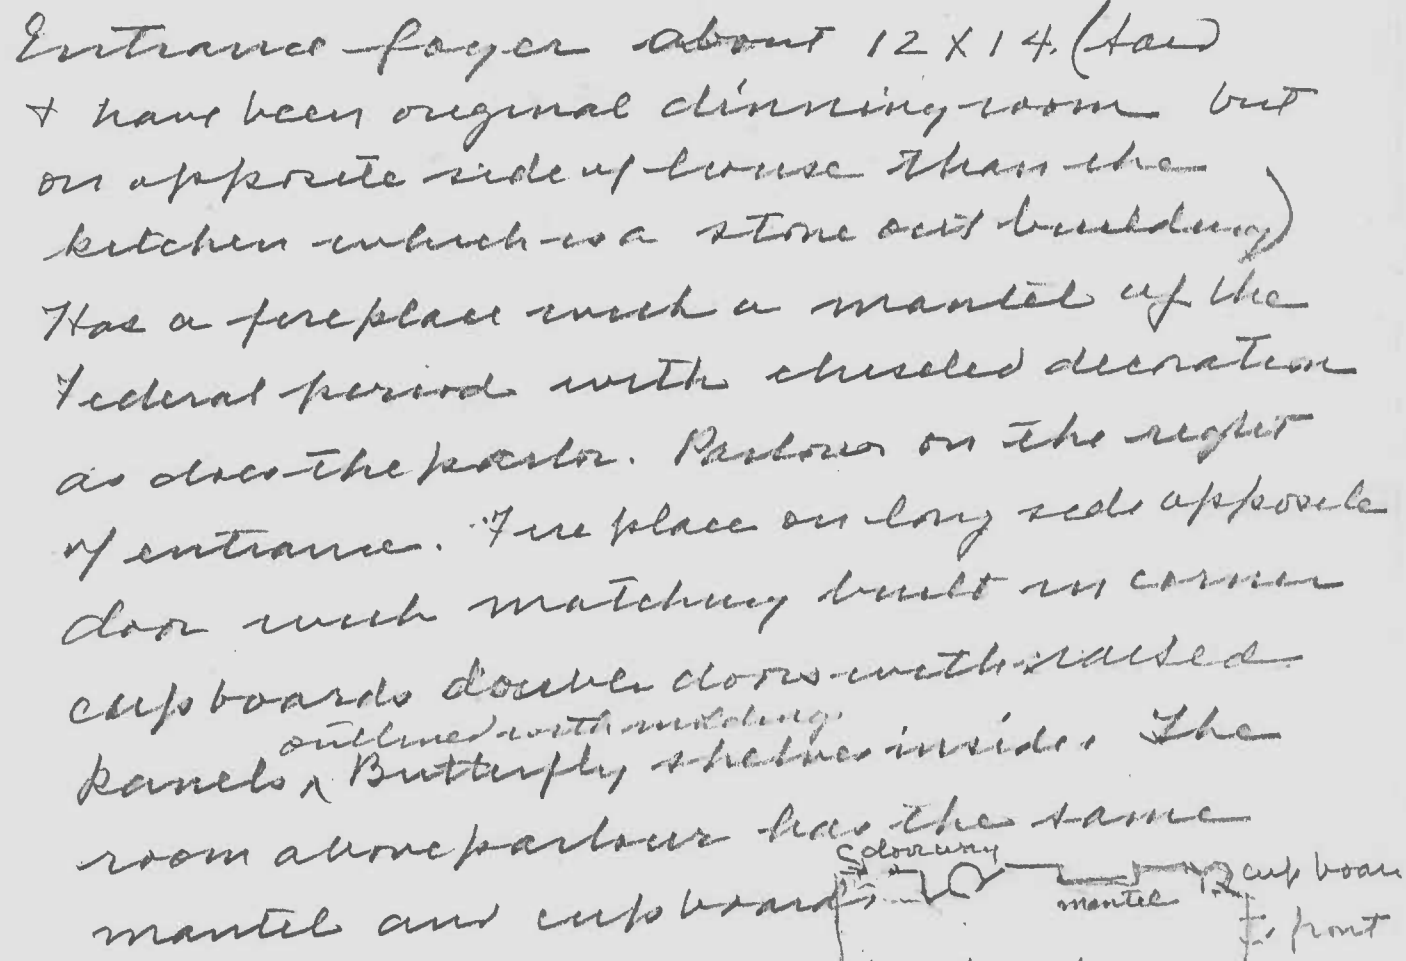 Entrance foyer about 12 X 14. (said
+ have been original dinning room but
on opposite side of house than the
kitchen which is a stone out building)
Has a fireplace with a mantel of the
Federal period with chiseled decoration
as does the parlor. Parlour on the right
of entrance. Fire place on long side opposite
door with matching built in corner
cupboards double doors with raised
outlined with molding.
panels, ^ Butterfly shelves inside. The
room above parlour has the same
mantel and cupboards
doorway
mantel
cup boar
front